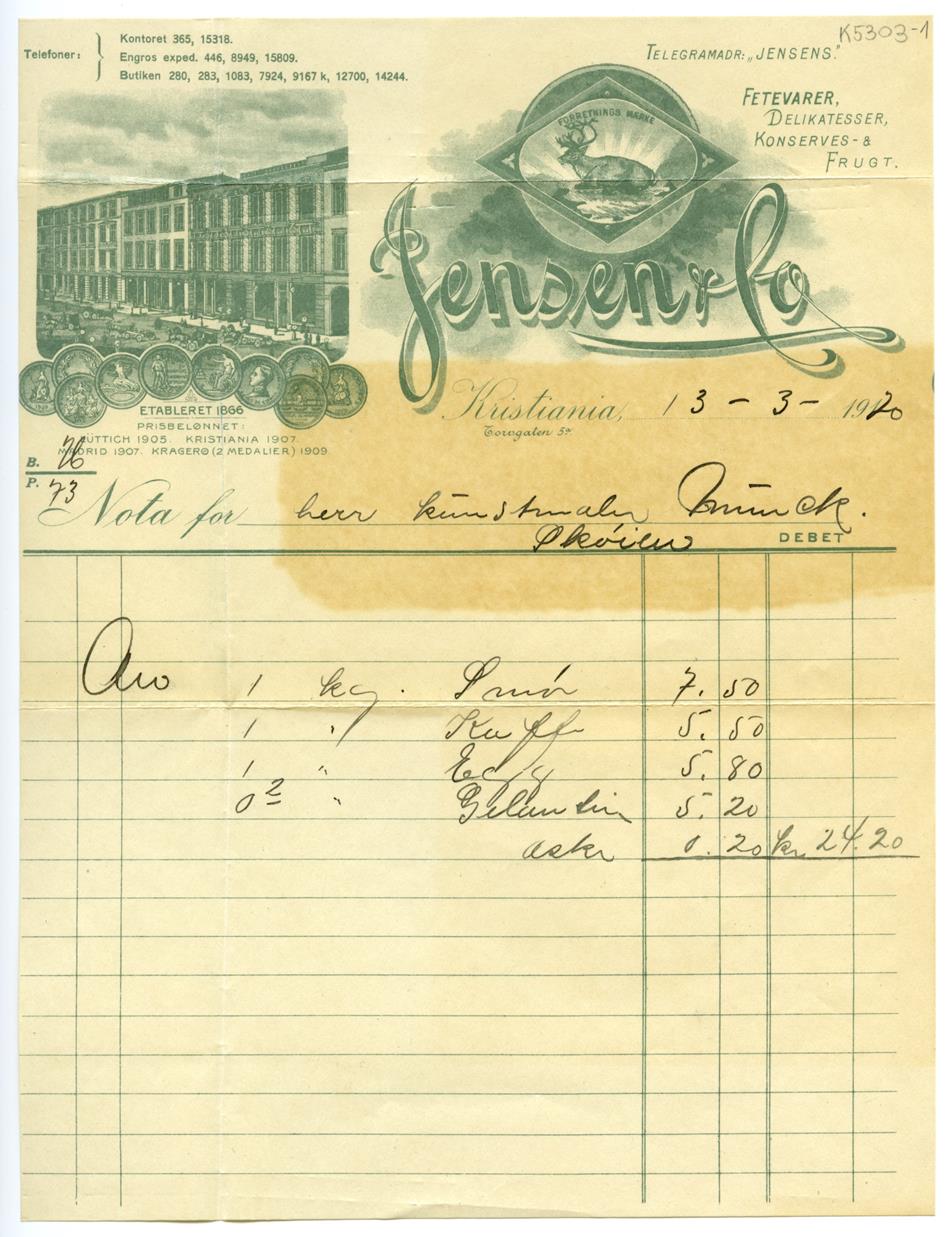 K5303-1
Telefoner: Kontoret 365, 15318.
Engros exped. 446, 8949, 15809.
Butiken 280, 283, 1083, 7924, 9167 k, 12700, 14244.
TELEGRAMADR: „JENSENS."
FETEVARER,
DELIKATESSER,
KONSERVES- &
FRUGT.
FORRETNINGS MÆRKE
Jensen & Co
ETABLERET 1866
PRISBELØNNET:
LÜTTICH 1905. KRISTIANIA 1907.
MADRID 1907. KRAGERØ (2 MEDALIER) 1909.
Kristiania, 13-3-1920
Torvgaten 5a
B. 76
P. 73
Nota for herr kunstmaler Munck.
Skøien
DEBET
1 kg. Smör 7.50
1 " Kaffe 5.50
1 " Egg 5.80
0 2 " 5.20
aske 0.20 kr. 24.20